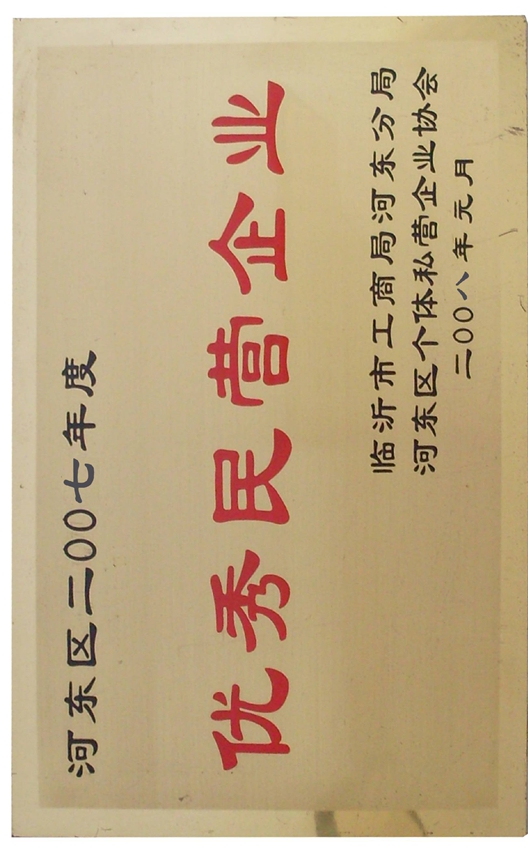 河东区二00七年度
优秀民营企业
临沂市工商局河东分局
河东区个体私营企业协会
二00八年元月